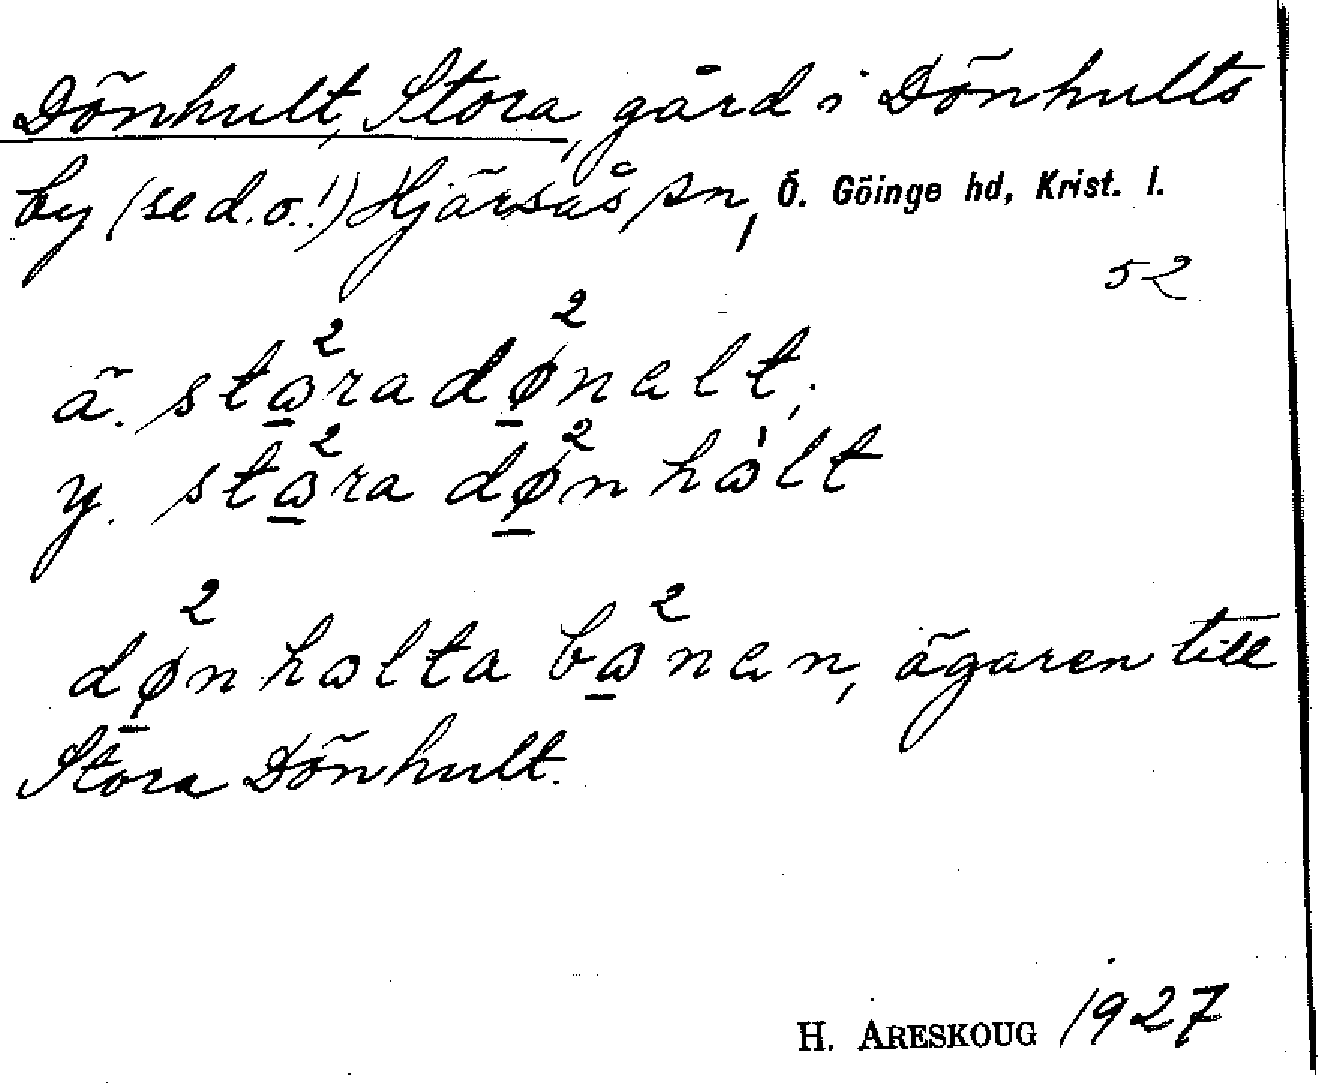 Dönhult, Stora, gård i Dönhults
by (se d.o.!) Hjärsås sn, Ö. Göinge hd, Krist. l.
52
ä. stω̱²radø̱²nelt;
y. stω̱²ra dø̱²nhὼlt
dø̱²nhωlta bω̱²nen, ägaren till
Stora Dönhult.
H. ARESKOUG 1927